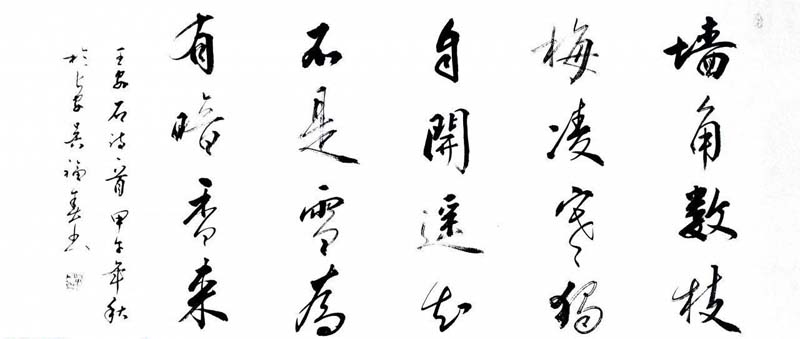 墙角数枝
梅凌寒独
自開遥知
不是雪為
有暗香来
王安石诗一首甲午年秋
於吴福书